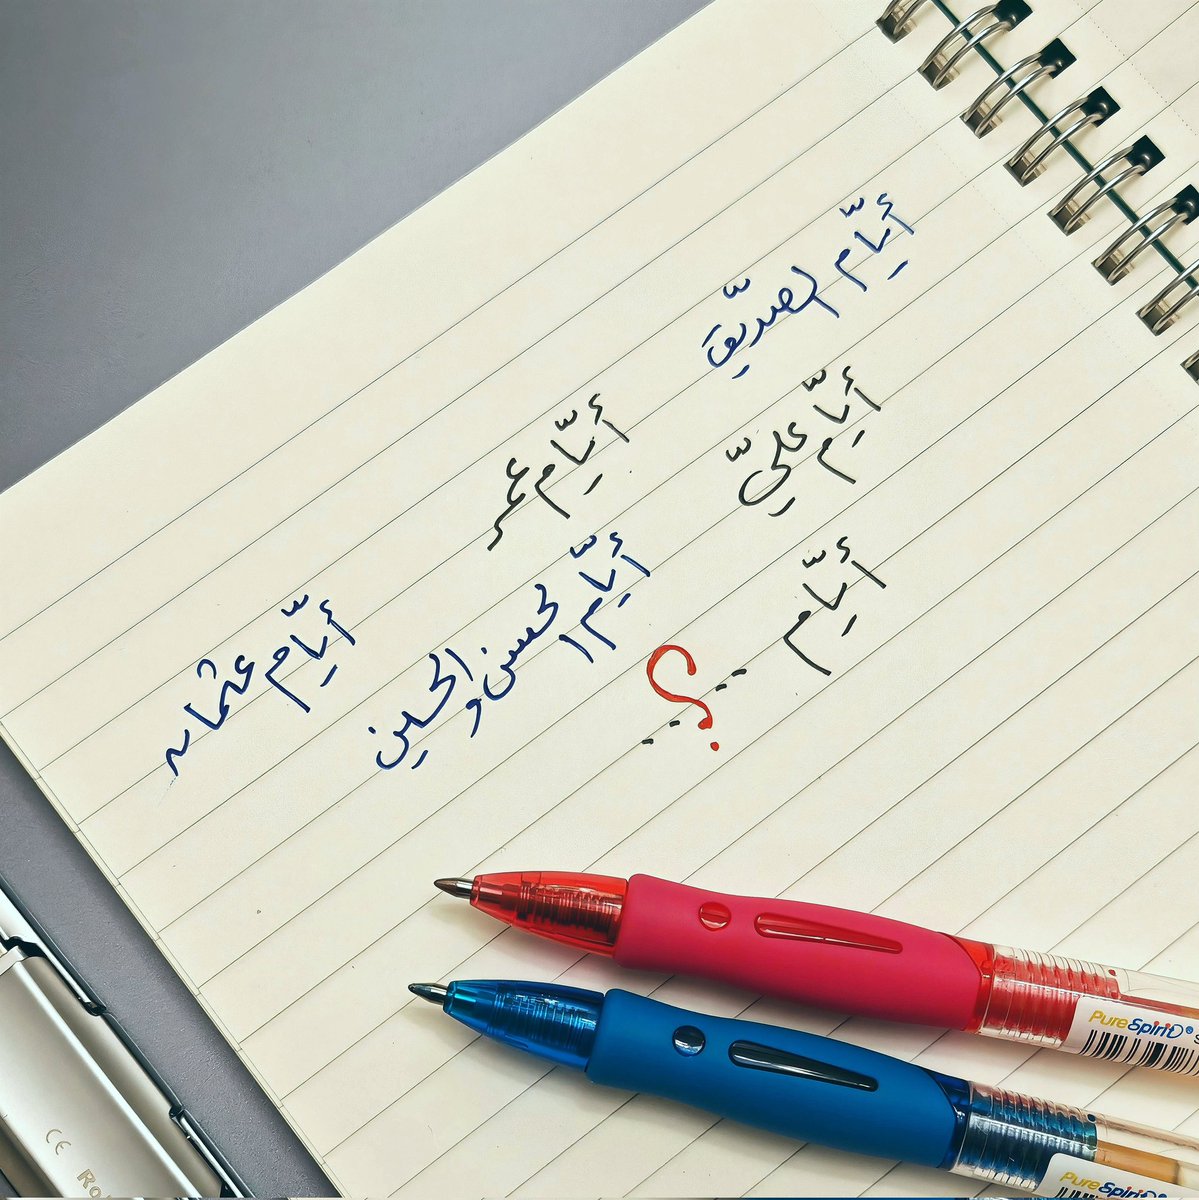 أيّام الصدّيق
أيّام عمر
أيّام عثمان
أيّام عليّ
أيّام الحسن والحسين
أيّام ... ؟ ...
PureSpirit®
PureSpirit
CE